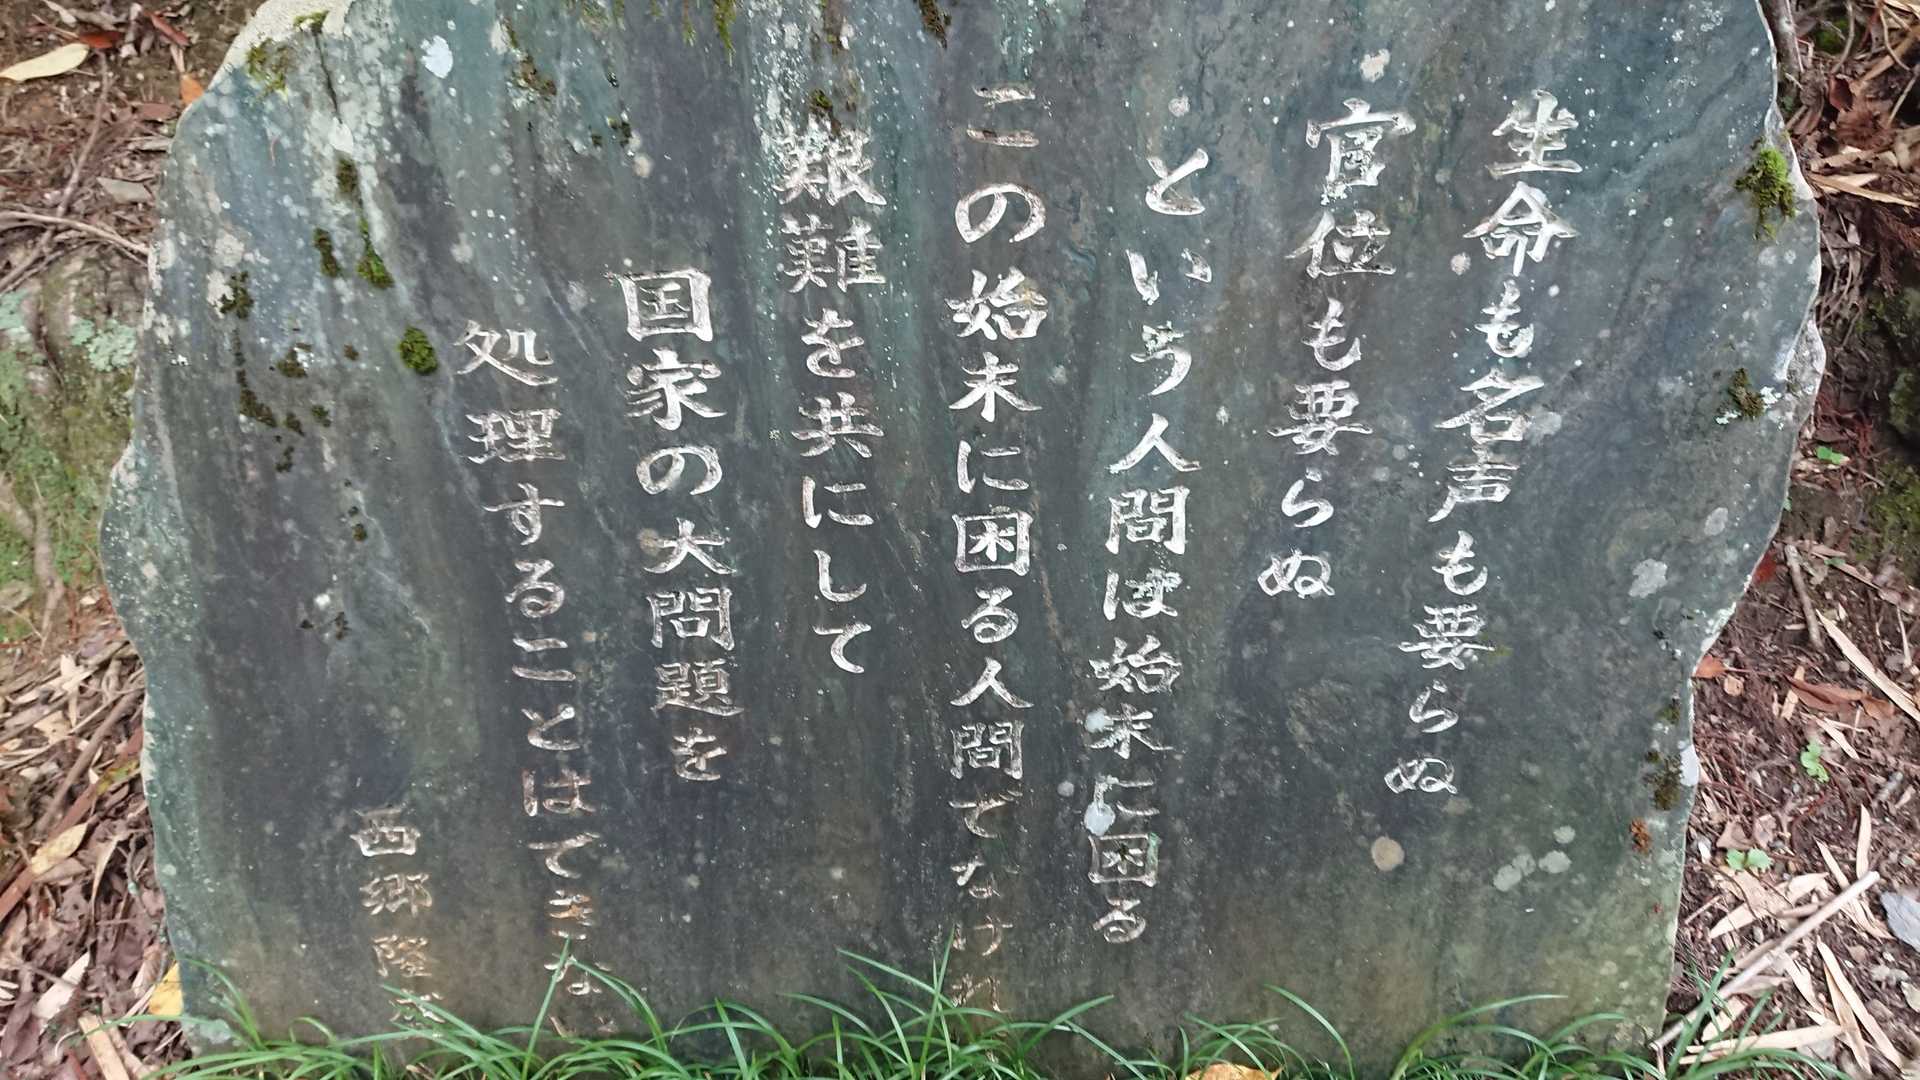 生命も名声も要らぬ
官位も要らぬ
という人間は始末に困る
この始末に困る人間でなけれ
艱難を共にして
国家の大問題を
処理することはできない
西郷隆